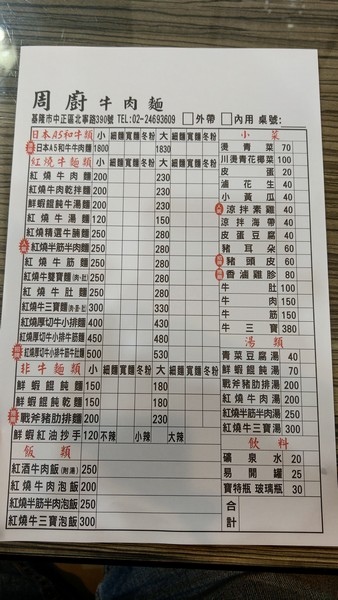 周廚牛肉麵
基隆市中正區北寧路390號 TEL:02-24693609 □外帶 □內用 桌號:
日本A5和牛類 小 細麵 寬麵 冬粉 大 細麵 寬麵 冬粉
日本A5和牛牛肉麵 1800 1830
紅燒牛麵類 小 細麵 寬麵 冬粉 大 細麵 寬麵 冬粉
紅燒牛肉麵 200 230
紅燒牛肉乾拌麵 200 230
鮮蝦餛飩牛湯麵 200 230
紅燒牛湯麵 120 150
紅燒精選牛腩麵 250 280
紅燒半筋半肉麵 250 280
紅燒牛筋麵 250 280
紅燒牛雙寶麵(肉.肚) 250 280
紅燒牛肚麵 250 280
紅燒牛三寶麵 300 330
紅燒厚切牛小排麵 400 430
紅燒厚切牛小排牛筋麵 450 480
紅燒厚切牛小排牛筋牛肚麵 500 530
非牛麵類 小 細麵 寬麵 冬粉 大 細麵 寬麵 冬粉
鮮蝦餛飩湯麵 150 180
鮮蝦餛飩乾麵 150 180
戰斧豬肋排麵 200 230
鮮蝦紅油抄手 120 不辣 小辣 大辣
飯類
紅酒牛肉飯(附湯) 250
紅燒牛肉泡飯 200
紅燒半筋半肉泡飯 250
紅燒牛三寶泡飯 300
小菜
燙青菜 70
川燙青花椰菜 100
皮蛋 20
滷花生 40
小黃瓜 40
涼拌素雞 40
涼拌海帶 40
皮蛋豆腐 40
豬耳朵 60
豬頭皮 60
香滷雞胗 80
牛肚 100
牛肉 150
牛筋 150
牛三寶 380
湯類
青菜豆腐湯 40
鮮蝦餛飩湯 70
戰斧豬肋排湯 200
紅燒牛肉湯 200
紅燒半筋半肉湯 250
紅燒牛三寶湯 300
飲料
礦泉水 20
易開罐 25
寶特瓶 玻璃瓶 30
合計